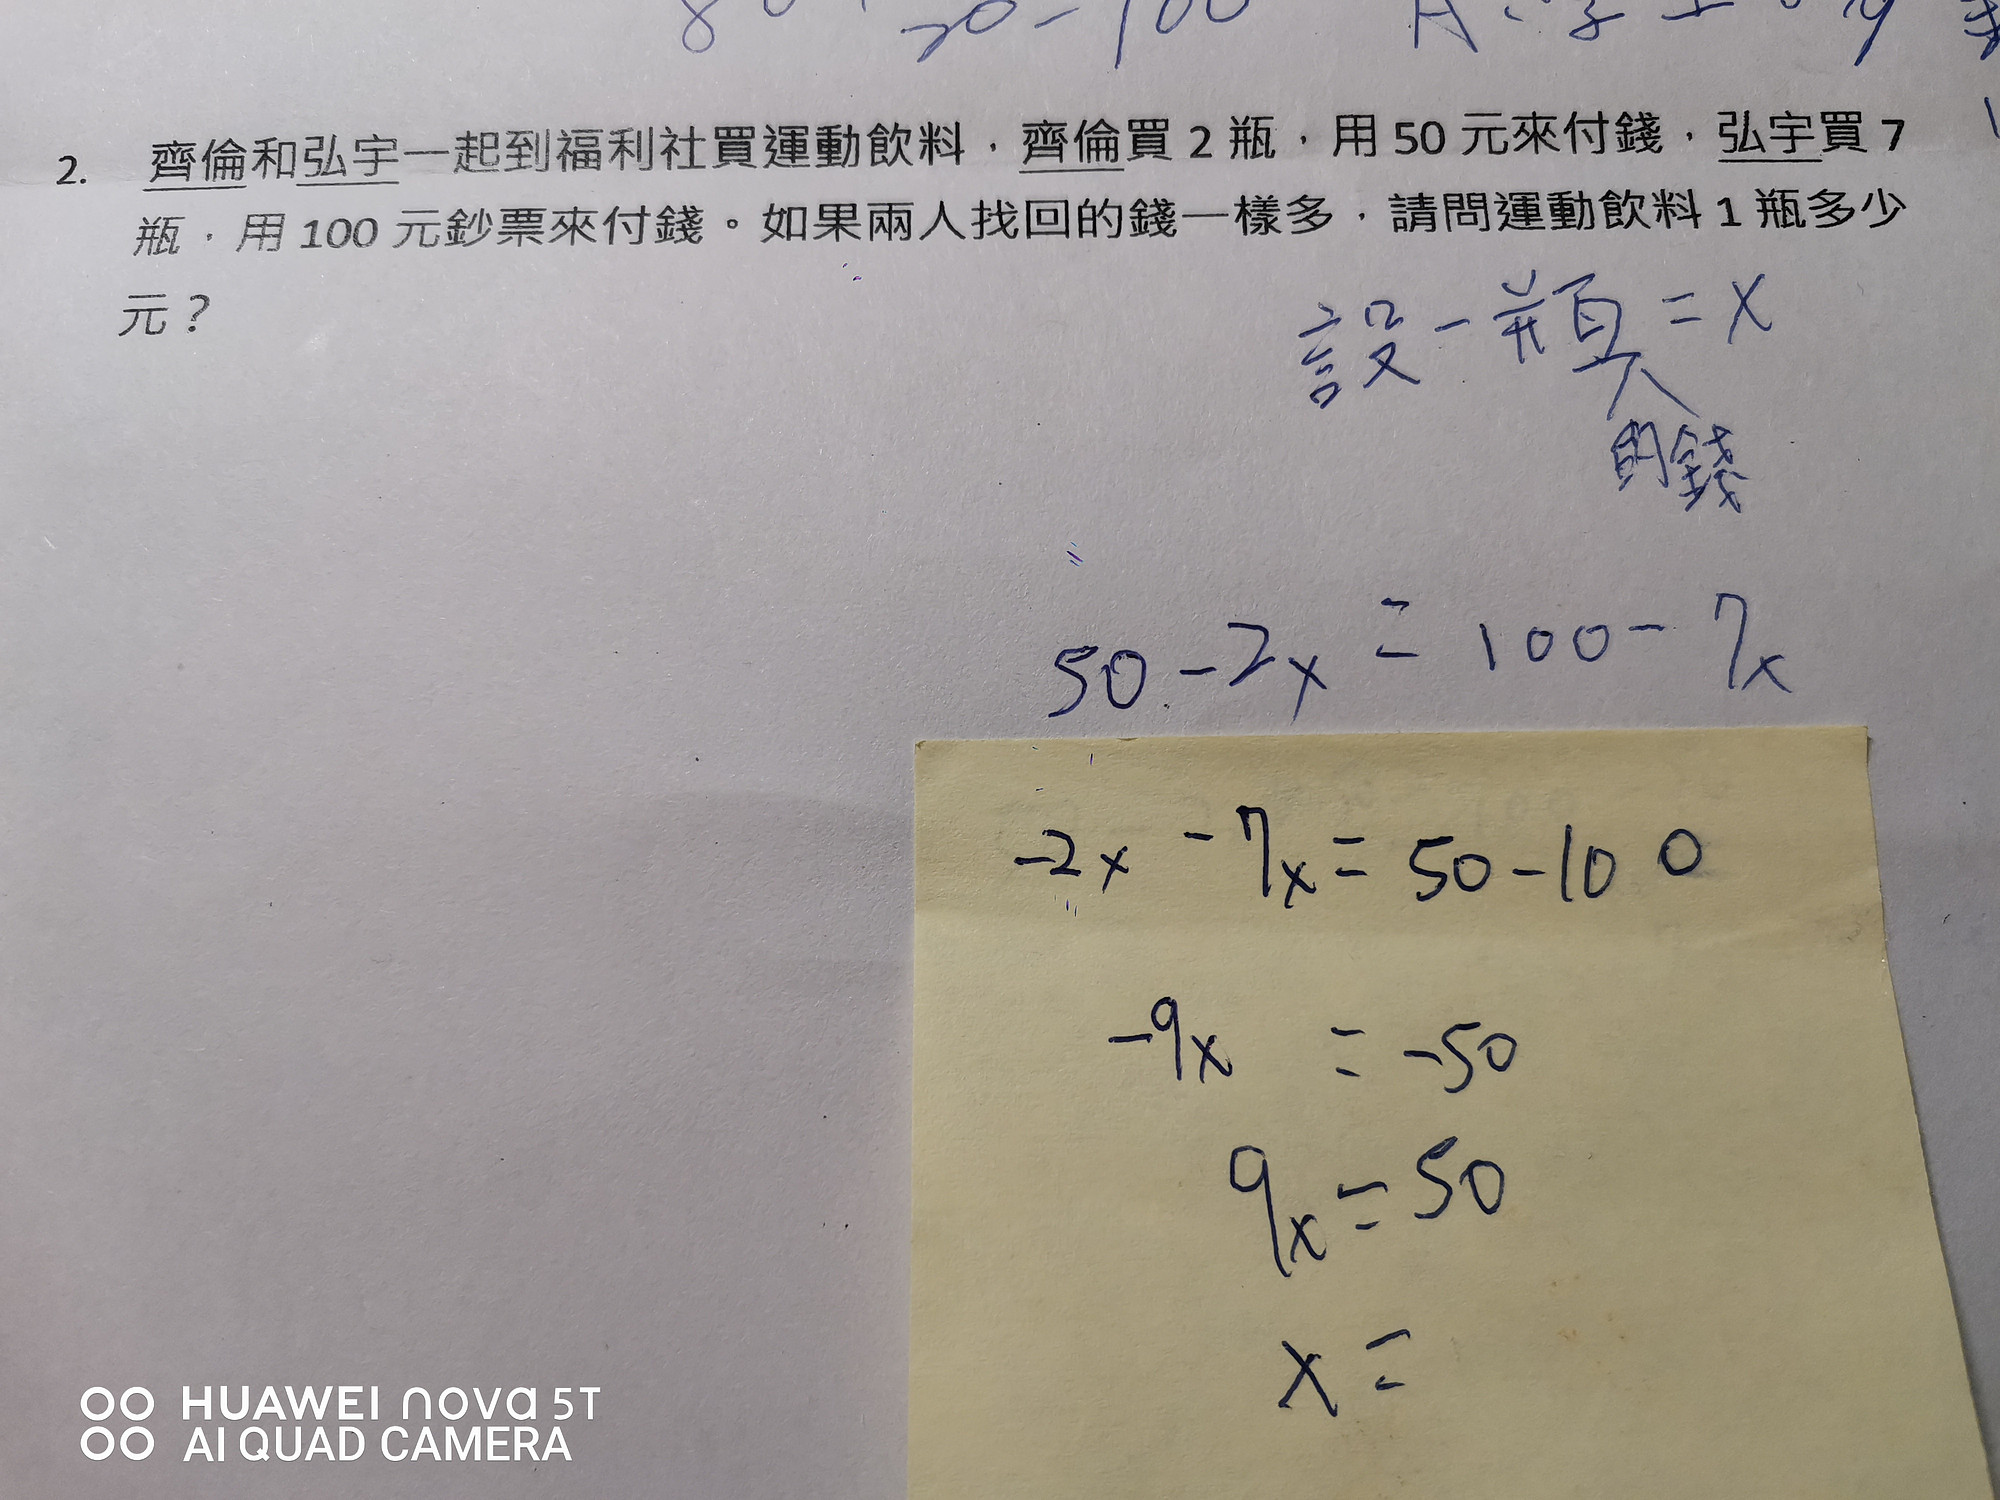 2. 齊倫和弘宇一起到福利社買運動飲料，齊倫買 2 瓶，用 50 元來付錢，弘宇買 7
瓶，用 100 元鈔票來付錢。如果兩人找回的錢一樣多，請問運動飲料 1 瓶多少
元？
設一瓶=x
的錢
50-2x=100-7x
-2x-7x=50-100
-9x=-50
9x=50
x=
HUAWEI nova 5T
AI QUAD CAMERA